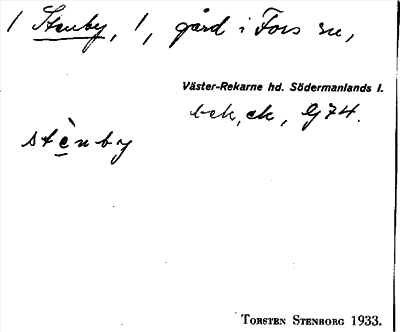 1 Stenby, 1, gård i Fors sn,
Väster-Rekarne hd. Södermanlands l.
bek, ek, Gj 74.
stènby
TORSTEN STENBORG 1933.